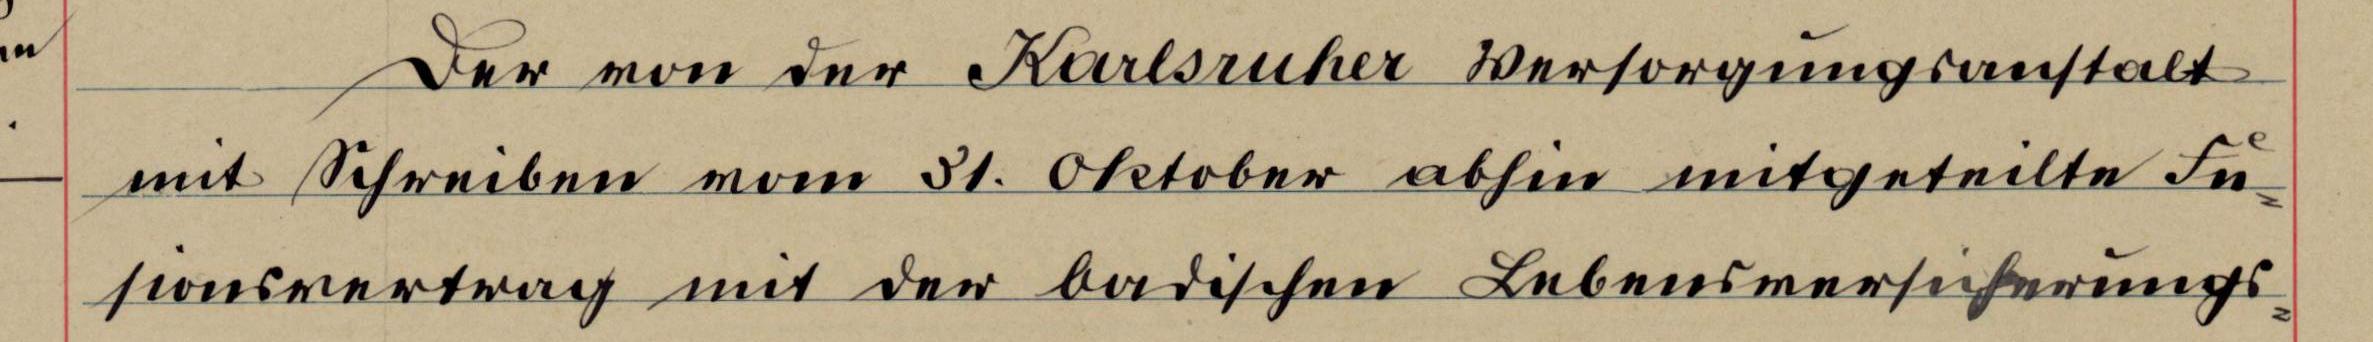 Der von der Karlsruher Versorgungsanstalt
mit Schreiben vom 31. Oktober abhin mitgeteilte Fu¬
sionsvertrag mit der badischen Lebensversicherungs¬